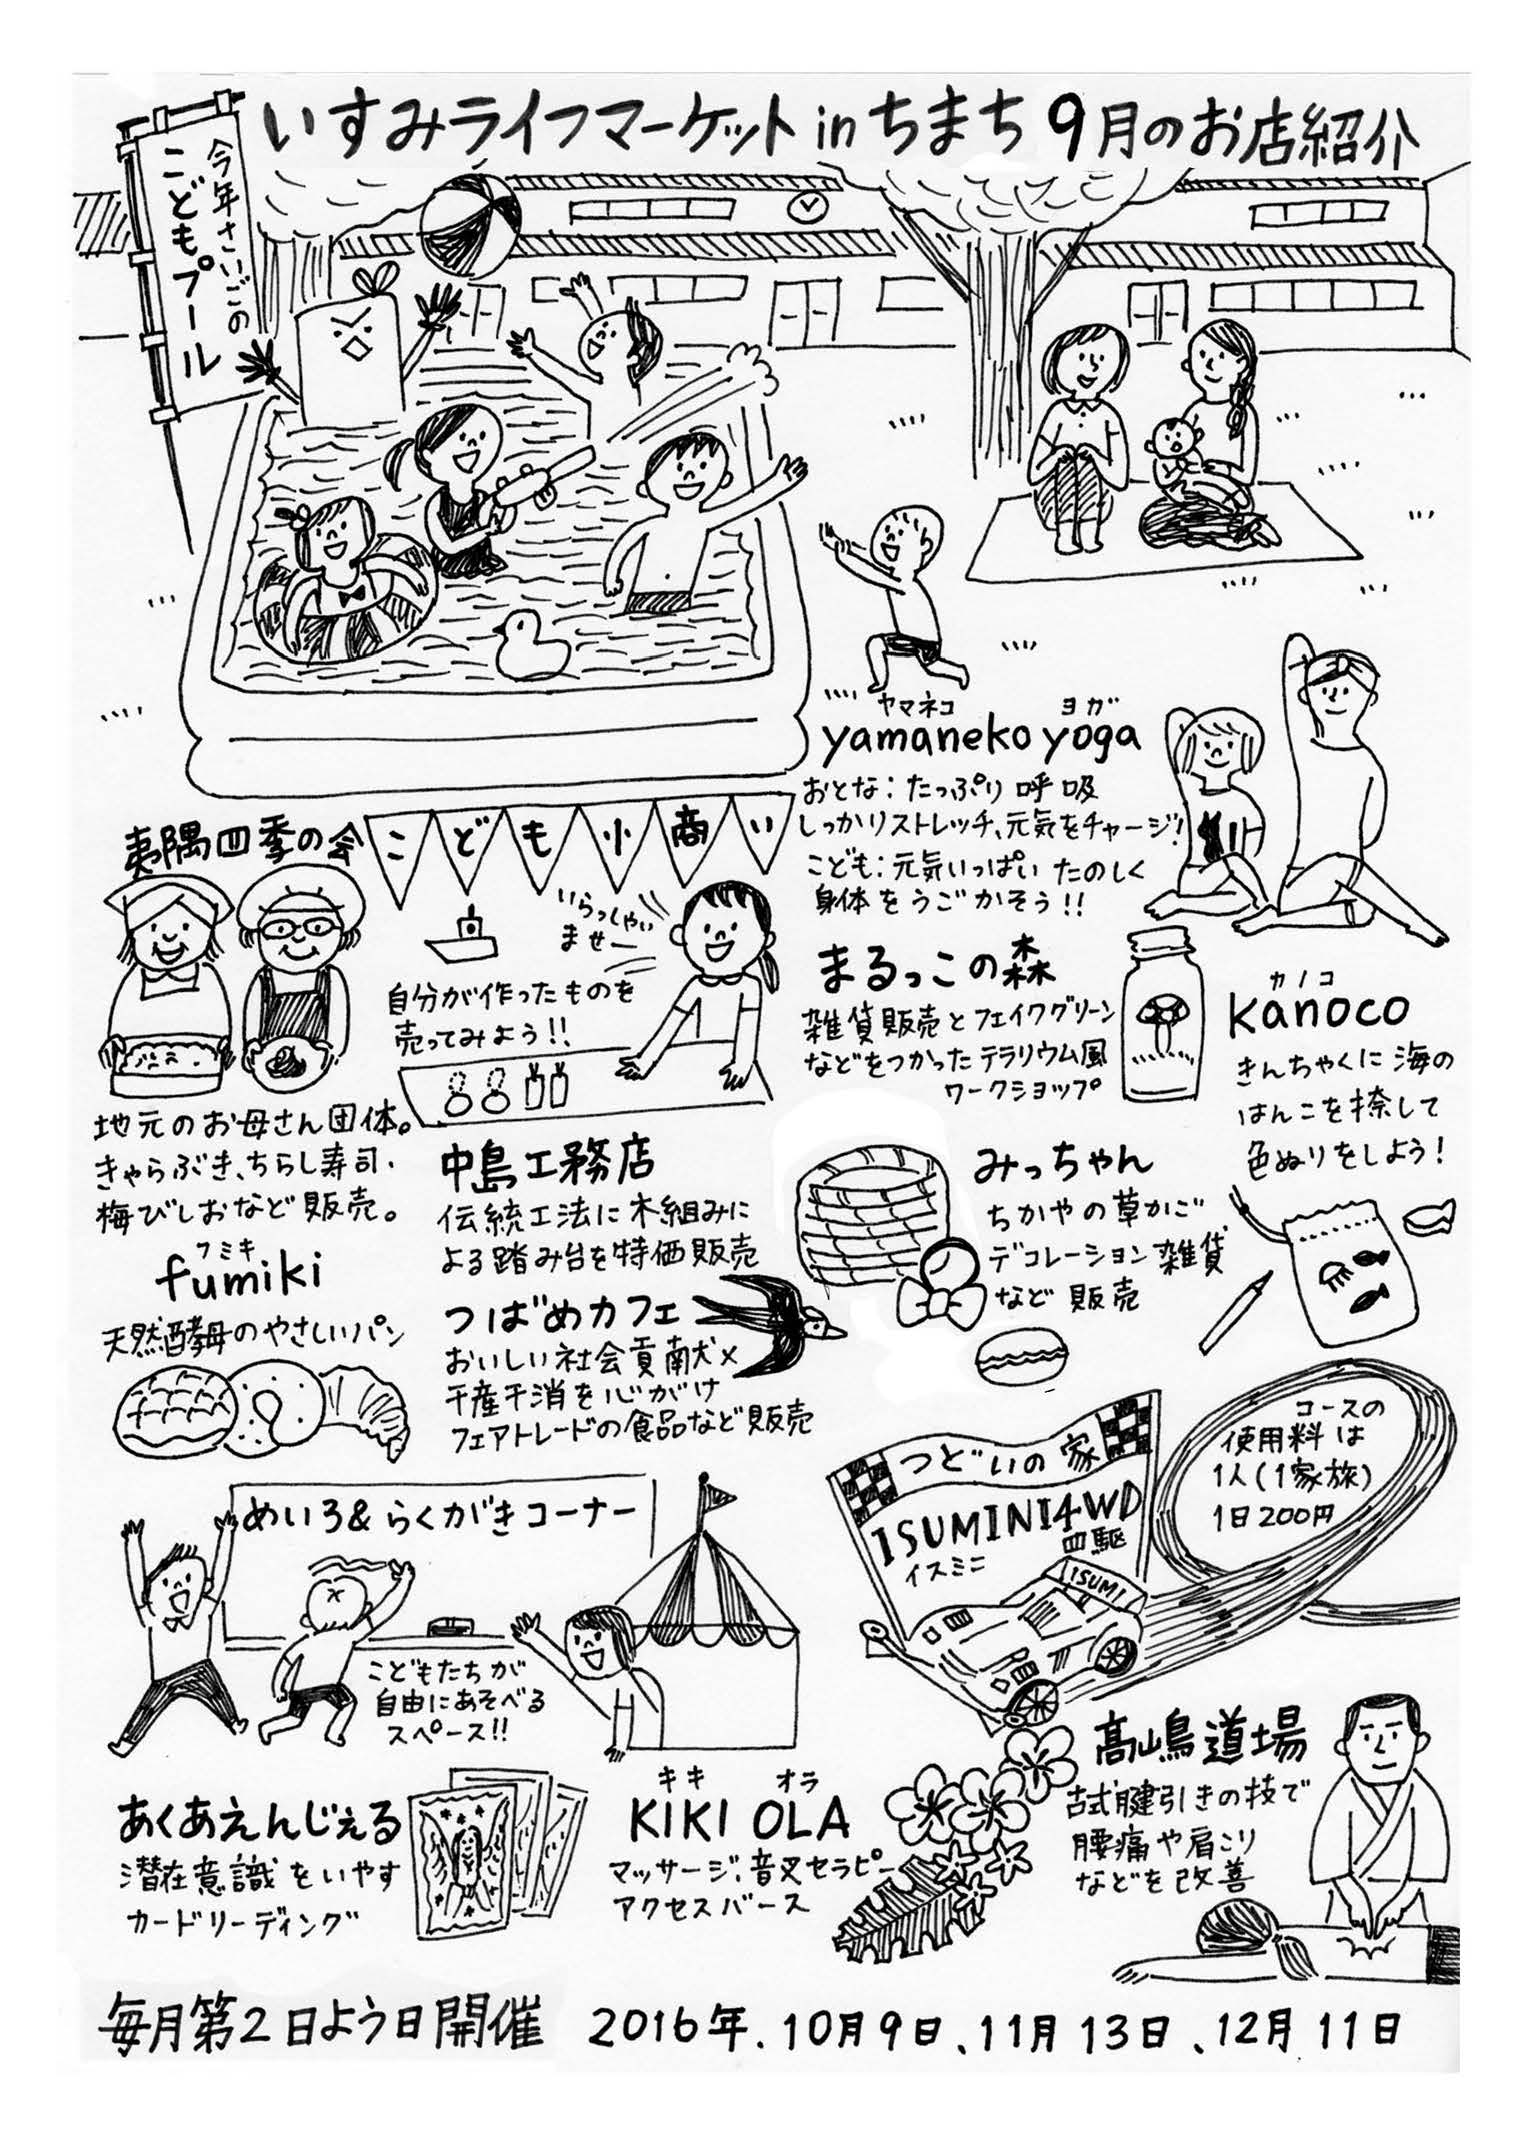 いすみライフマーケット in ちまち 9月のお店紹介
今年さいごの
こどもプール
ヤマネコ ヨガ
yamaneko yoga
おとな：たっぷり呼吸
しっかりストレッチ、元気をチャージ！
こども：元気いっぱい たのしく
身体をうごかそう！！
夷隅四季の会
地元のお母さん団体。
きゃらぶき、ちらし寿司・
梅びしおなど販売。
こども小商い
いらっしゃい
ませー
自分が作ったものを
売ってみよう！！
まるっこの森
雑貨販売とフェイクグリーン
などをつかったテラリウム風
ワークショップ
カノコ
kanoco
きんちゃくに海の
はんこを捺して
色ぬりをしよう！
中島工務店
伝統工法に木組みに
よる踏み台を特価販売
みっちゃん
ちかやの草かご
デコレーション雑貨
など 販売
フミキ
fumiki
天然酵母のやさしいパン
つばめカフェ
おいしい社会貢献×
千産千消を心がけ
フェアトレードの食品など販売
つどいの家
ISUMINI4WD
イスミニ 四駆
ISUMI
コースの
使用料は
1人(1家族)
1日200円
めいろ&らくがきコーナー
こどもたちが
自由にあそべる
スペース！！
あくあえんじぇる
潜在意識をいやす
カードリーディング
キキ オラ
KIKI OLA
マッサージ、音叉セラピー
アクセスバース
髙嶋道場
古式腱引きの技で
腰痛や肩こり
などを改善
毎月第2日よう日開催 2016年、10月9日、11月13日、12月11日